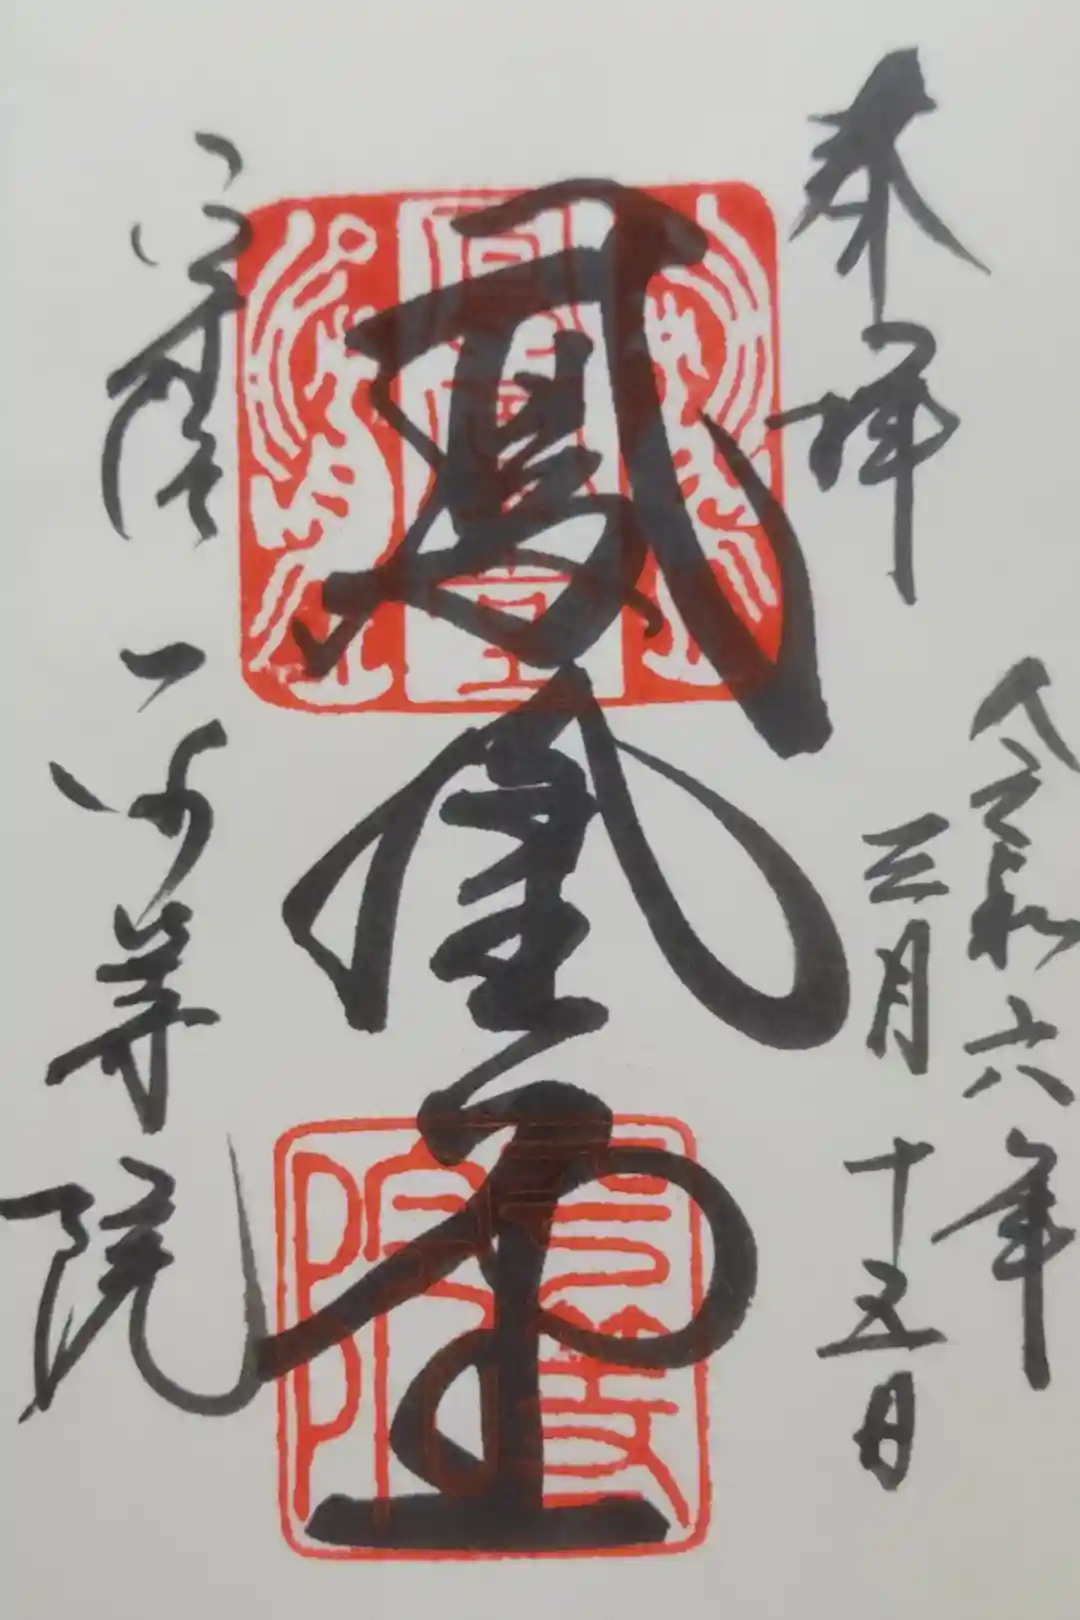 奉拝
令和六年
三月十五日
鳳凰堂
宇治
平等院